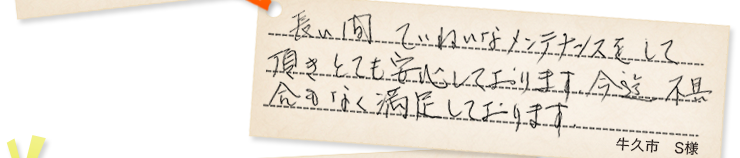 長い間 ていねいなメンテナンスをして
頂きとても安心しております。今迄 不具
合もなく満足しております。
牛久市 S様